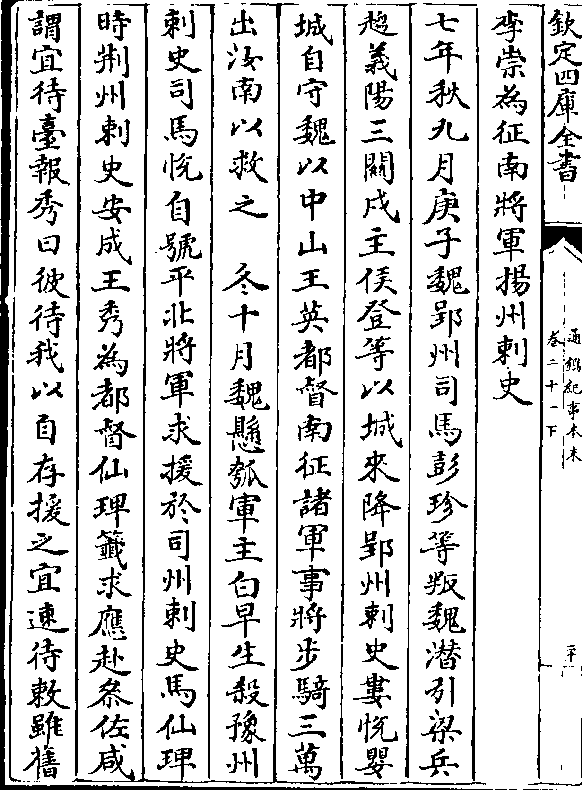 欽定四庫全書
通鑑紀事本末
卷二十一下
李崇為征南將軍揚州刺史
七年秋九月庚子魏郢州司馬彭珍等叛魏潜引梁兵
趨義陽三關戍主侯登等以城來降郢州刺史婁悅嬰
城自守魏以中山王英都督南征諸軍事將步騎三萬
出汝南以救之 冬十月魏懸瓠軍主白早生殺豫州
刺史司馬悅自號平北將軍求援於司州刺史馬仙琕
時荆州刺史安成王秀為都督仙琕籖求應赴叅佐咸
謂宜待臺報秀曰彼待我以自存援之宜速待敕雖舊